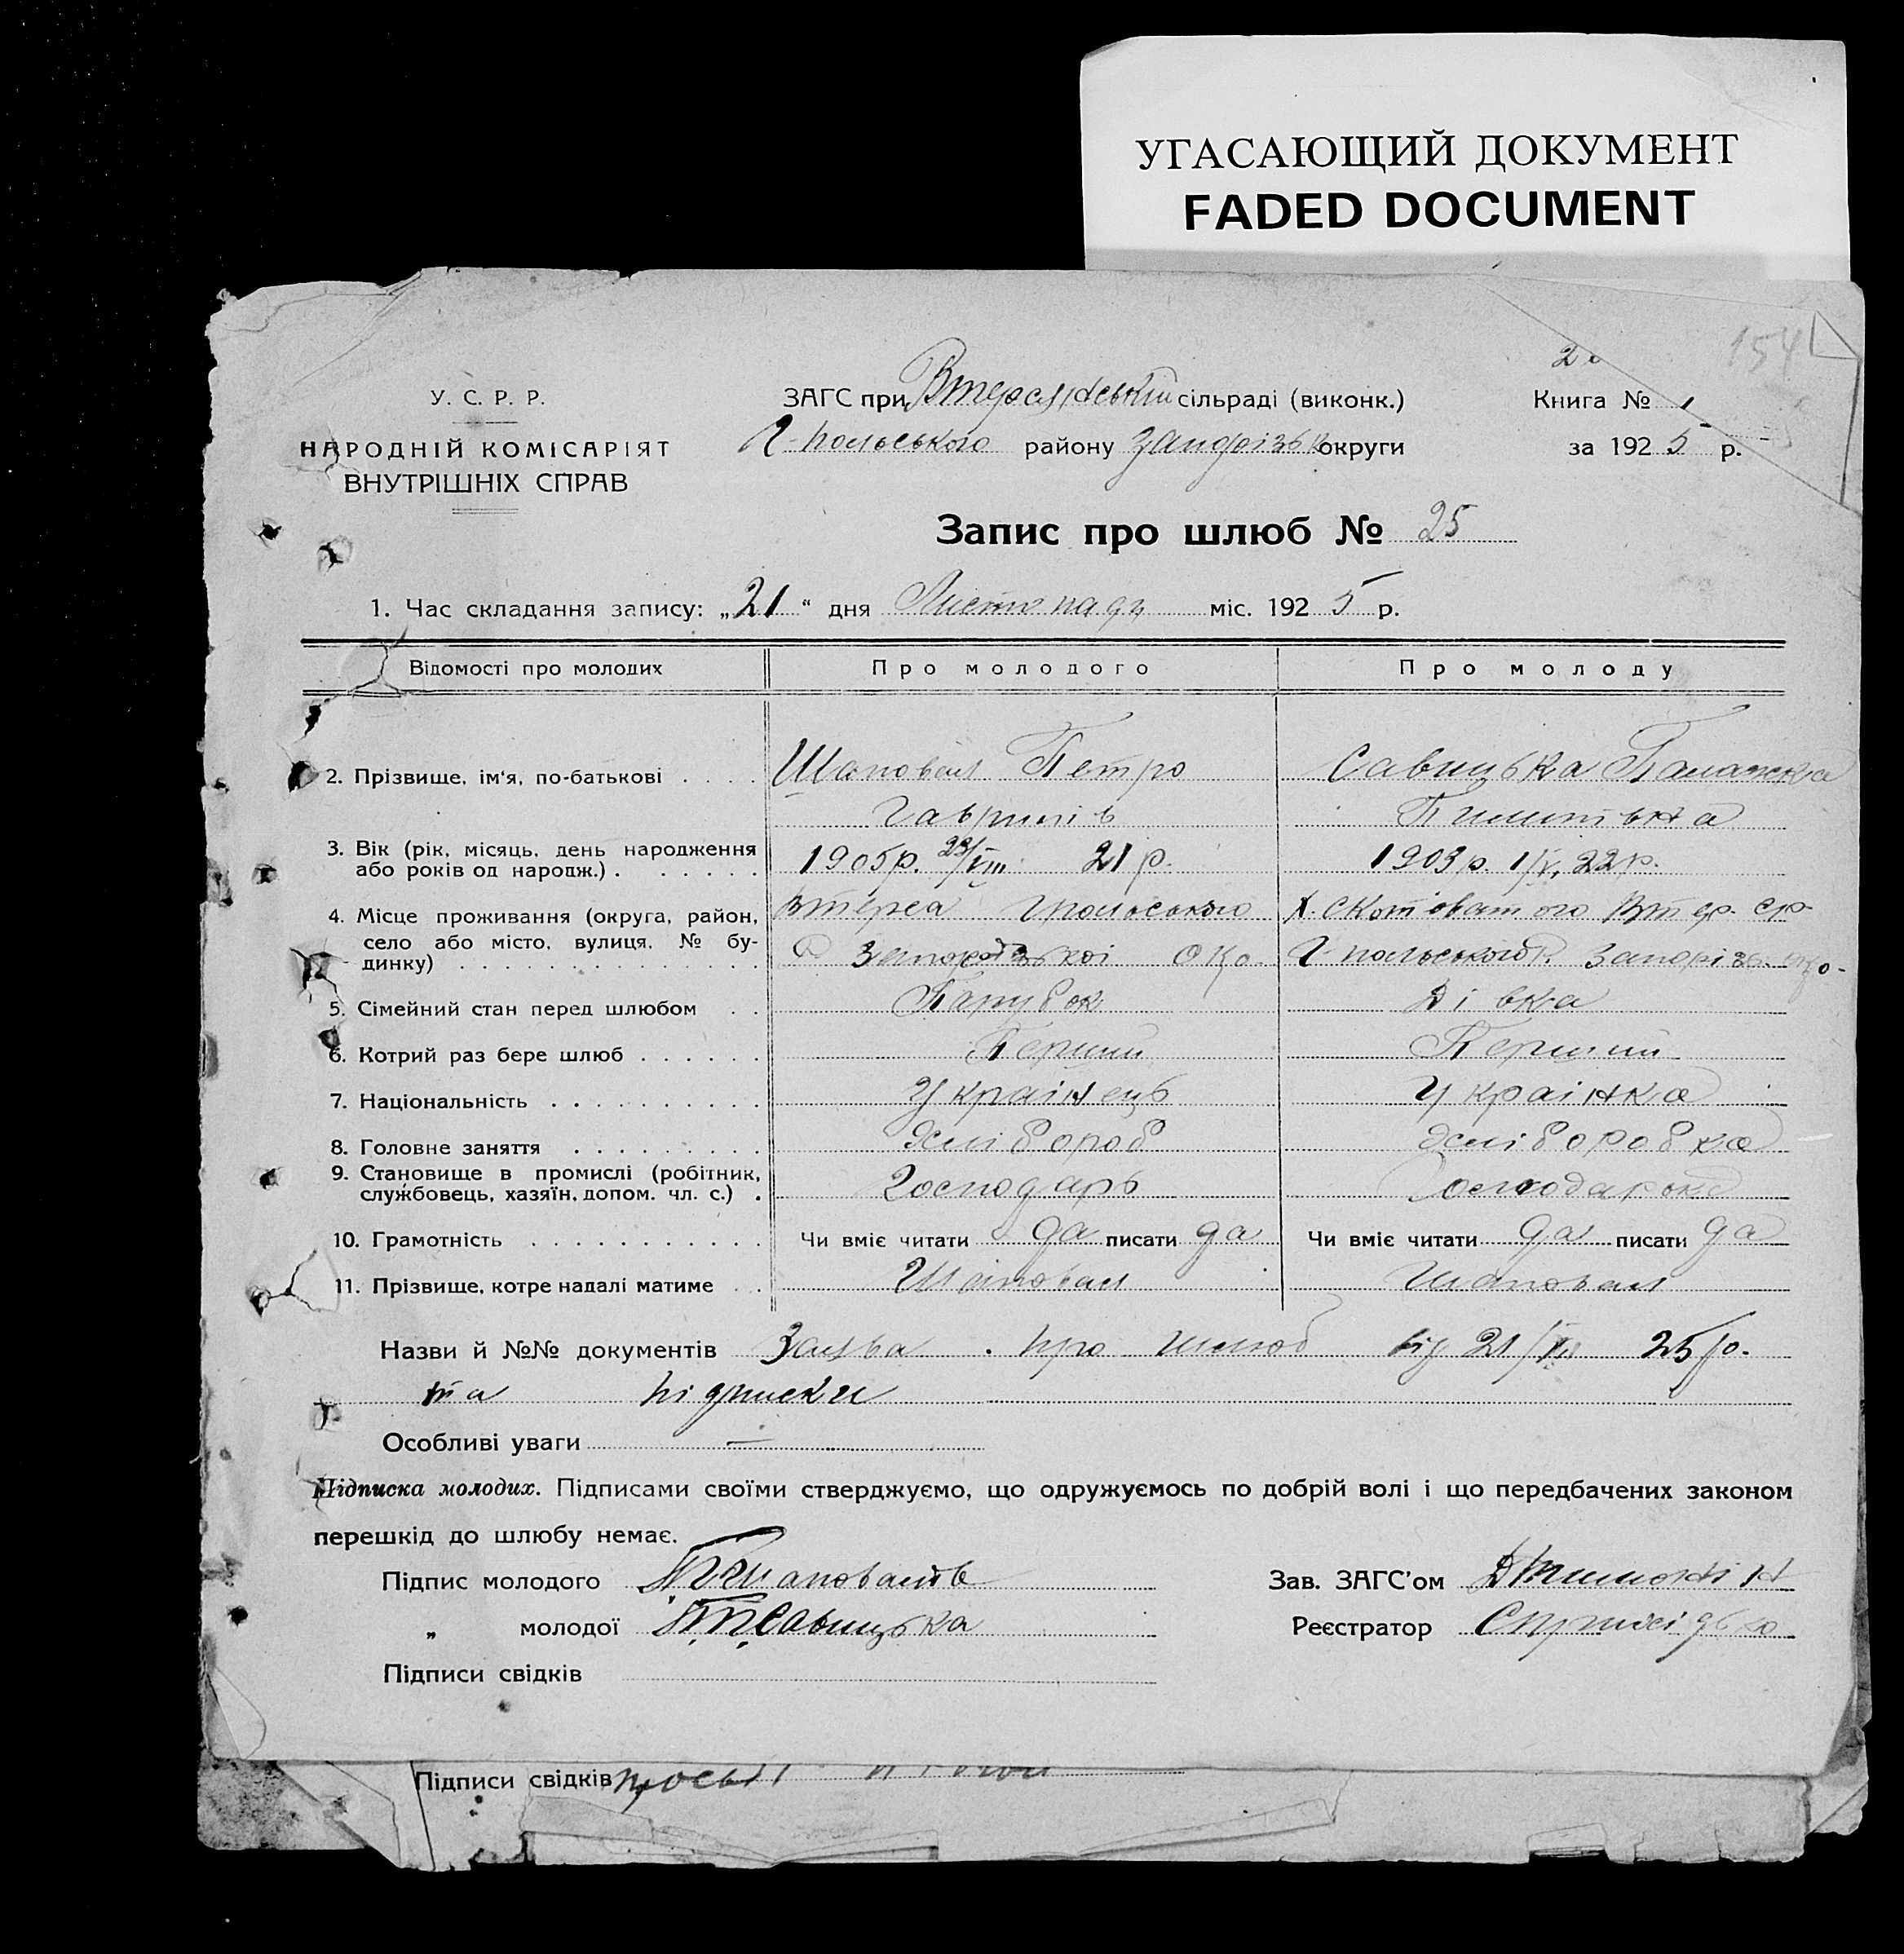 УГАСАЮЩИЙ ДОКУМЕНТ
FADED DOCUMENT
154
У. С. Р. Р.
НАРОДНІЙ КОМІСАРІЯТ
ВНУТРІШНІХ СПРАВ
ЗАГС при сільраді (виконк.)
Г-польського району Запорізьк округи
Книга № 1
за 1925 р.
Запис про шлюб № 25
1. Час складання запису: „21“ дня Листопаду міс. 1925 р.
Відомості про молодих Про молодого Про молоду
2. Прізвище, ім'я, по-батькові . . . . Шаповал Петро Савицька Палажка
Гаврилів Пилипівна
3. Вік (рік, місяць, день народження
або років од народж.) . . . . . . 1905р. 23/VIII 21 р. 1903 р. 1/V, 22 р.
4. Місце проживання (округа, район,
село або місто, вулиця, № бу-
динку) . . . . . . . . . . . . . .
Втерса Гпольського
Р Запорізькоі Окр.
Х. Скотоватого Втер. с/р
Г-польського Р. Запорізь. окр.
5. Сімейний стан перед шлюбом . . Парубок Дівка
6. Котрий раз бере шлюб . . . . . . Перший Перший
7. Національність . . . . . . . . . . Украінець Украінка
8. Головне заняття . . . . . . . . Хліბороб Хліборобка
9. Становище в промислі (робітник,
службовець, хазяїн, допом. чл. с.) . Господарь
10. Грамотність . . . . . . . . . . . Чи вміє читати да писати да Чи вміє читати да писати да
11. Прізвище, котре надалі матиме . . Шаповал Шаповал
Назви й №№ документів Заява про шлюб від 21/XI 25 р.
та підписки
Особливі уваги —
Підписка молодих. Підписами своїми стверджуємо, що одружуємось по добрій волі і що передбачених законом
перешкід до шлюбу немає.
Підпис молодого
Зав. ЗАГС'ом
„ молодої П.П. Савицька
Реєстратор
Підписи свідків
Підписи свідків